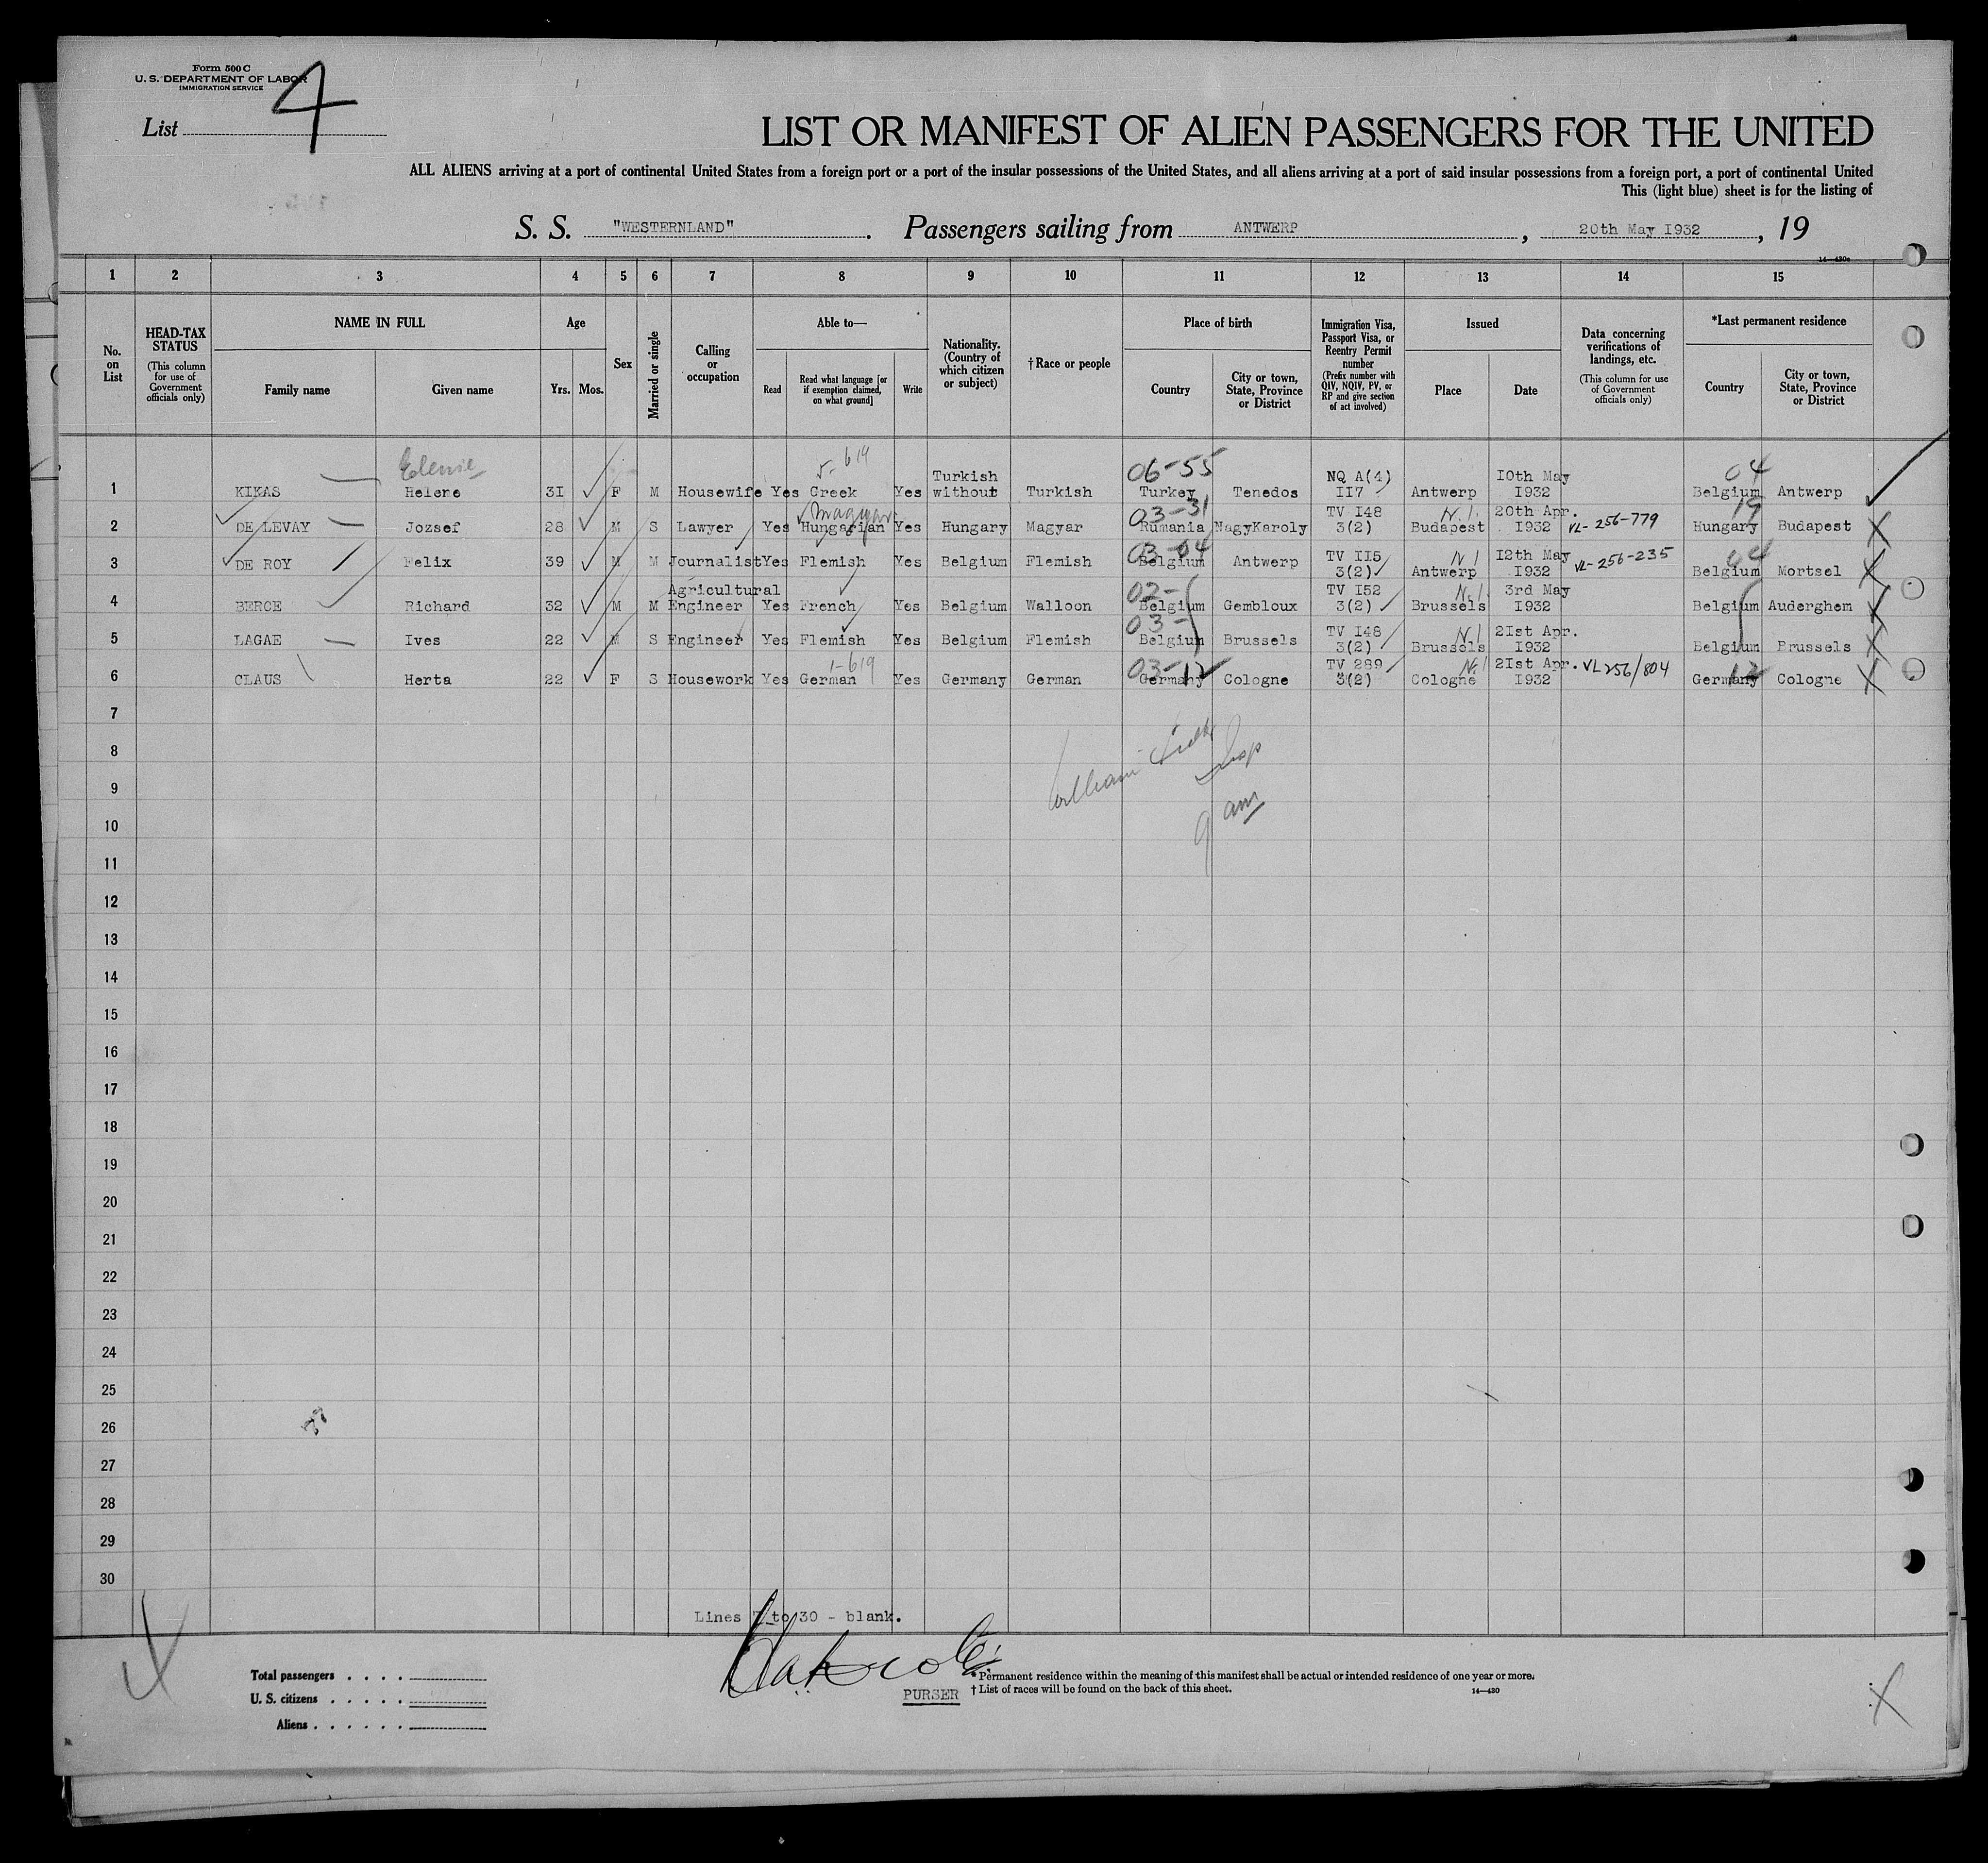 Form 500 C
U. S. DEPARTMENT OF LABOR
IMMIGRATION SERVICE
List 4
LIST OR MANIFEST OF ALIEN PASSENGERS FOR THE UNITED
ALL ALIENS arriving at a port of continental United States from a foreign port or a port of the insular possessions of the United States, and all aliens arriving at a port of said insular possessions from a foreign port, a port of continental United
This (light blue) sheet is for the listing of
S. S. "WESTERNLAND". Passengers sailing from ANTWERP, 20th May I932, 19
14—430c
1 2 3 4 5 6 7 8 9 10 11 12 13 14 15
No. on List
HEAD-TAX STATUS
(This column for use of Government officials only)
NAME IN FULL
Family name
Given name
Age
Yrs. Mos.
Sex
Married or single
Calling or occupation
Able to—
Read
Read what language [or if exemption claimed, on what ground]
Write
Nationality. (Country of which citizen or subject)
†Race or people
Place of birth
Country
City or town, State, Province or District
Immigration Visa, Passport Visa, or Reentry Permit number
(Prefix number with QIV, NQIV, PV, or RP and give section of act involved)
Issued
Place
Date
Data concerning verifications of landings, etc.
(This column for use of Government officials only)
*Last permanent residence
Country
City or town, State, Province or District
Elenie 5-619 06-55 04
1 KIKAS Helene 3I F M Housewife Yes Greek Yes Turkish without Turkish Turkey Tenedos NQ A(4) II7 Antwerp I0th May I932 Belgium Antwerp
Magyar 03-31 N.I. 19
2 DE LEVAY Jozsef 28 M S Lawyer Yes Hungarian Yes Hungary Magyar Rumania NagyKaroly TV I48 3(2) Budapest 20th Apr. I932 VL-256-779 Hungary Budapest
03-04 N I 04
3 DE ROY Felix 39 M M Journalist Yes Flemish Yes Belgium Flemish Belgium Antwerp TV II5 3(2) Antwerp I2th May I932 VL-256-235 Belgium Mortsel
02- N.I
4 BERCE Richard 32 M M Agricultural Engineer Yes French Yes Belgium Walloon Belgium Gembloux TV I52 3(2) Brussels 3rd May I932 Belgium Auderghem
03- N I
5 LAGAE Ives 22 M S Engineer Yes Flemish Yes Belgium Flemish Belgium Brussels TV I48 3(2) Brussels 2Ist Apr. I932 Belgium Brussels
1-619 03-12 N.I 12
6 CLAUS Herta 22 F S Housework Yes German Yes Germany German Germany Cologne TV 289 3(2) Cologne 2Ist Apr. I932 VL256/804 Germany Cologne
7
8 William Insp
9
10 9 am
11
12
13
14
15
16
17
18
19
20
21
22
23
24
25
26
27
28
29
30
Lines 7 to 30 - blank.
Total passengers
U. S. citizens
Aliens
PURSER
* Permanent residence within the meaning of this manifest shall be actual or intended residence of one year or more.
† List of races will be found on the back of this sheet.
14—430